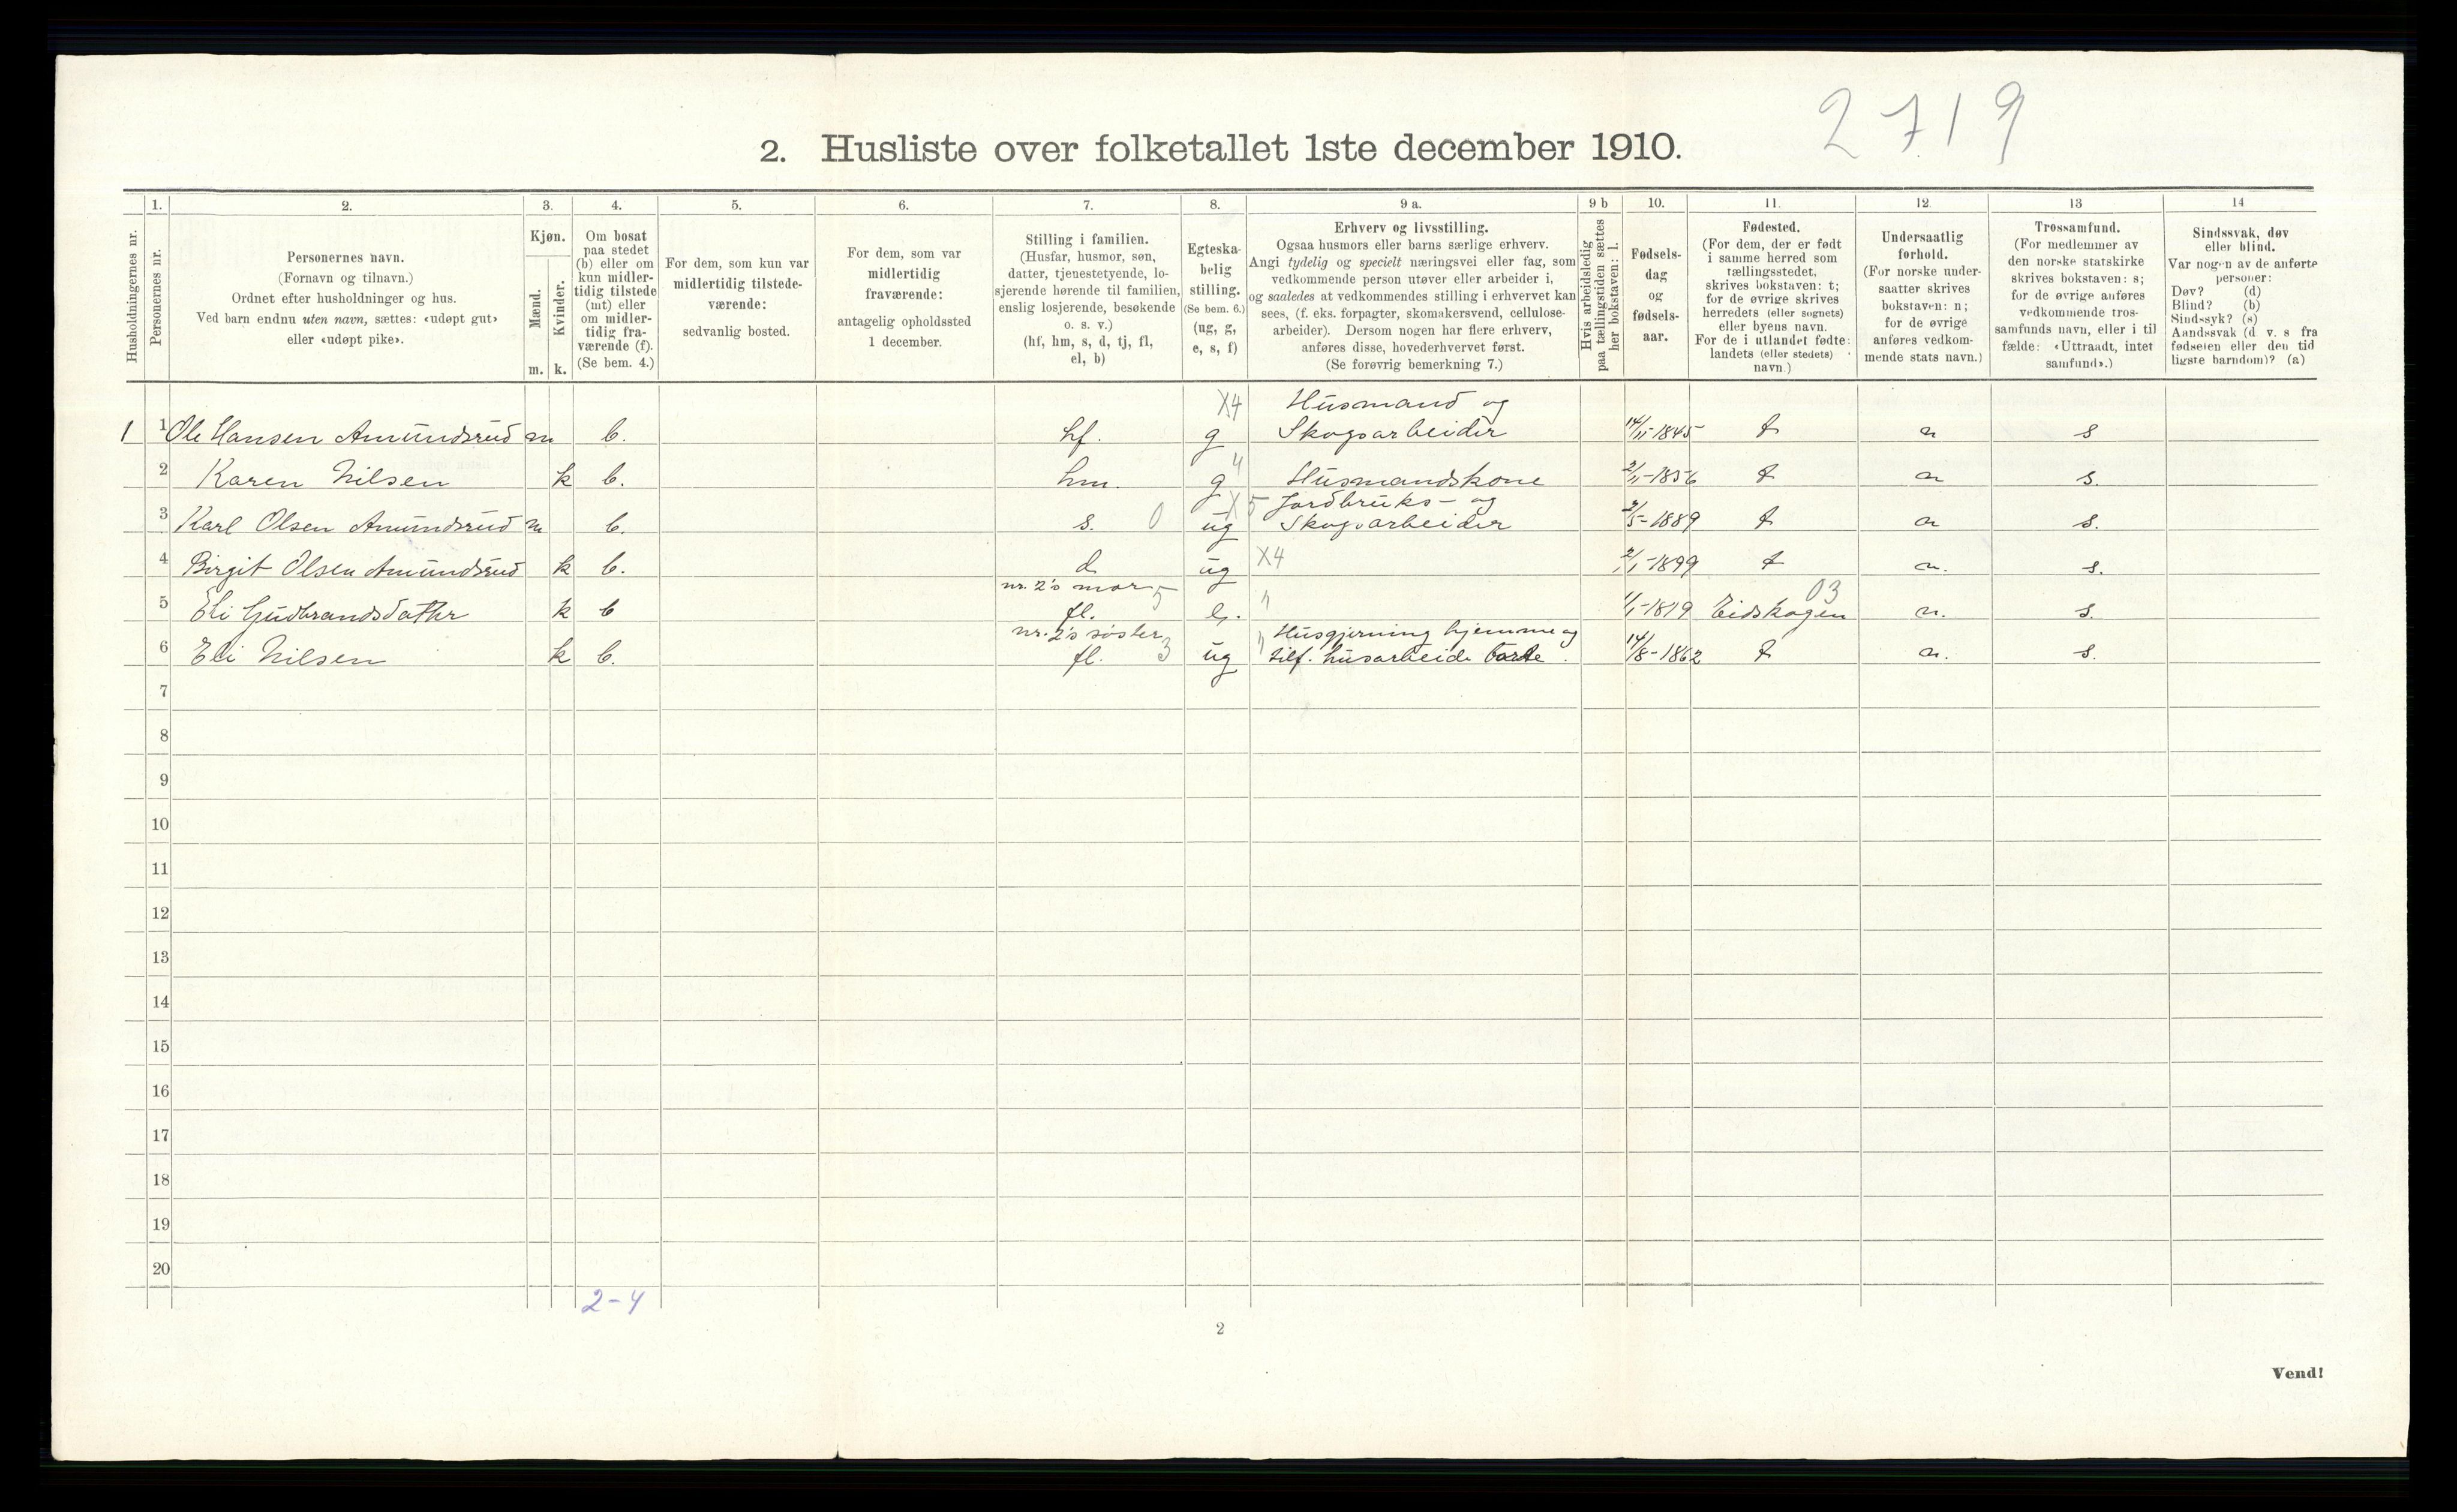 2719
2. Husliste over folketallet 1ste december 1910.
Husholdningernes nr.
1.
Personernes nr.
2.
Personernes navn.
(Fornavn og tilnavn.)
Ordnet efter husholdninger og hus.
Ved barn endnu uten navn, sættes: «udøpt gut»
eller «udøpt pike».
3.
Kjøn.
Mænd.
Kvinder.
m. k.
4.
Om bosat
paa stedet
(b) eller om
kun midler-
tidig tilstede
(mt) eller
om midler-
tidig fra-
værende (f).
(Se bem. 4.)
5.
For dem, som kun var
midlertidig tilstede-
værende:
sedvanlig bosted.
6.
For dem, som var
midlertidig
fraværende:
antagelig opholdssted
1 december.
7.
Stilling i familien.
(Husfar, husmor, søn,
datter, tjenestetyende, lo-
sjerende hørende til familien,
enslig losjerende, besøkende
o. s. v.)
(hf, hm, s, d, tj, fl,
el, b)
8.
Egteska-
belig
stilling.
(Se bem. 6.)
(ug, g,
e, s, f)
9 a.
Erhverv og livsstilling.
Ogsaa husmors eller barns særlige erhverv.
Angi tydelig og specielt næringsvei eller fag, som
vedkommende person utøver eller arbeider i,
og saaledes at vedkommendes stilling i erhvervet kan
sees, (f. eks. forpagter, skomakersvend, cellulose-
arbeider). Dersom nogen har flere erhverv,
anføres disse, hovederhvervet først.
(Se forøvrig bemerkning 7.)
9 b
Hvis arbeidsledig
paa tællingstiden sættes
her bokstaven: l.
10.
Fødsels-
dag
og
fødsels-
aar.
11.
Fødested.
(For dem, der er født
i samme herred som
tællingsstedet,
skrives bokstaven: t;
for de øvrige skrives
herredets (eller sognets)
eller byens navn.
For de i utlandet fødte:
landets (eller stedets)
navn.)
12.
Undersaatlig
forhold.
(For norske under-
saatter skrives
bokstaven: n;
for de øvrige
anføres vedkom-
mende stats navn.)
13
Trossamfund.
(For medlemmer av
den norske statskirke
skrives bokstaven: s;
for de øvrige anføres
vedkommende tros-
samfunds navn, eller i til
fælde: «Uttraadt, intet
samfund».)
14
Sindssvak, døv
eller blind.
Var nogen av de anførte
personer:
Døv? (d)
Blind? (b)
Sindssyk? (s)
Aandssvak (d v. s fra
fødselen eller den tid
ligste barndom)? (a)
X4 Husmand og
1 1 Ole Hansen Amundsrud m b. hf. g Skogsarbeider 14/11-1845 t n s
4
2 Karen Nilsen k b. hm. g Husmandskone 2/11-1856 t n s.
X5 Jordbruks- og
3 Karl Olsen Amundsrud m b. s. 0 ug Skogsarbeider 2/5-1889 t n s.
4 Birgit Olsen Amundsrud k b. d ug X4 2/1-1899 t n. s.
nr. 2's mor 5 03
5 Eli Gudbrandsdatter k b fl. e. 1/1-1819 Eidskogen n. s.
nr. 2's søster 3 Husgjerning hjemme og
6 Eli Nilsen k b. fl. ug tilf. husarbeide borte. 14/8-1862 t n. s.
7
8
9
10
11
12
13
14
15
16
17
18
19
20
2-4
2
Vend!